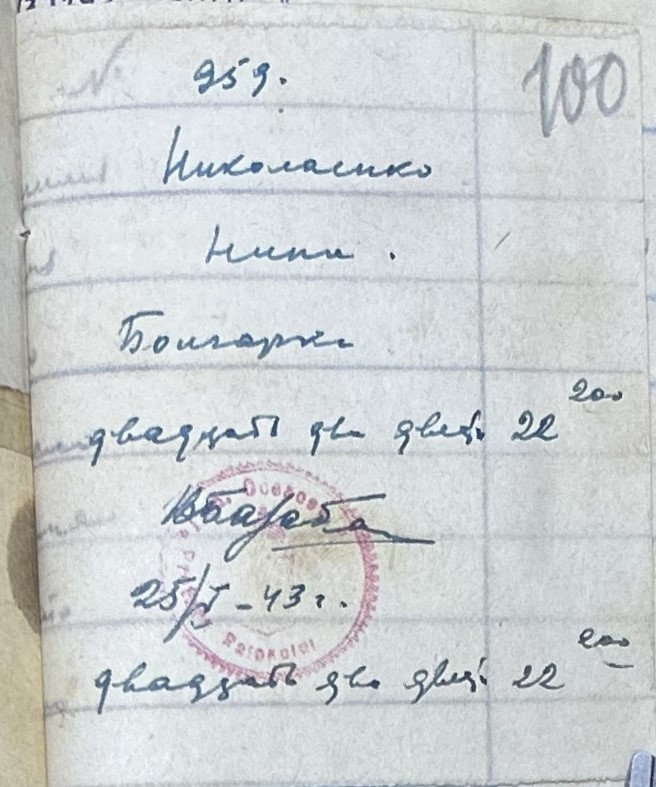 100
259.
Николаенко
Нина.
Болгарка
двадцать два двести 22 200
25/I-43 г.
двадцать два двести 22 200
Raionului